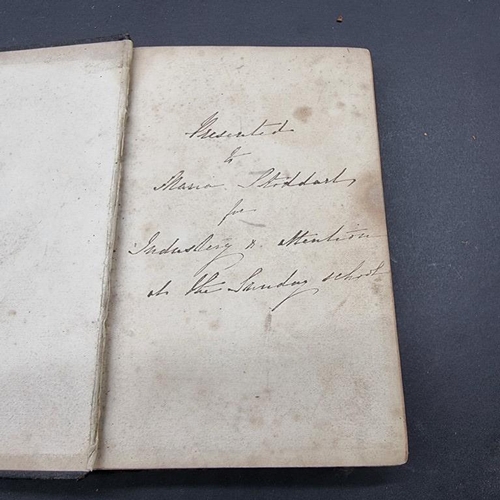 Presented
to
Maria Stoddart
for
Industery & attention
at the Sunday school